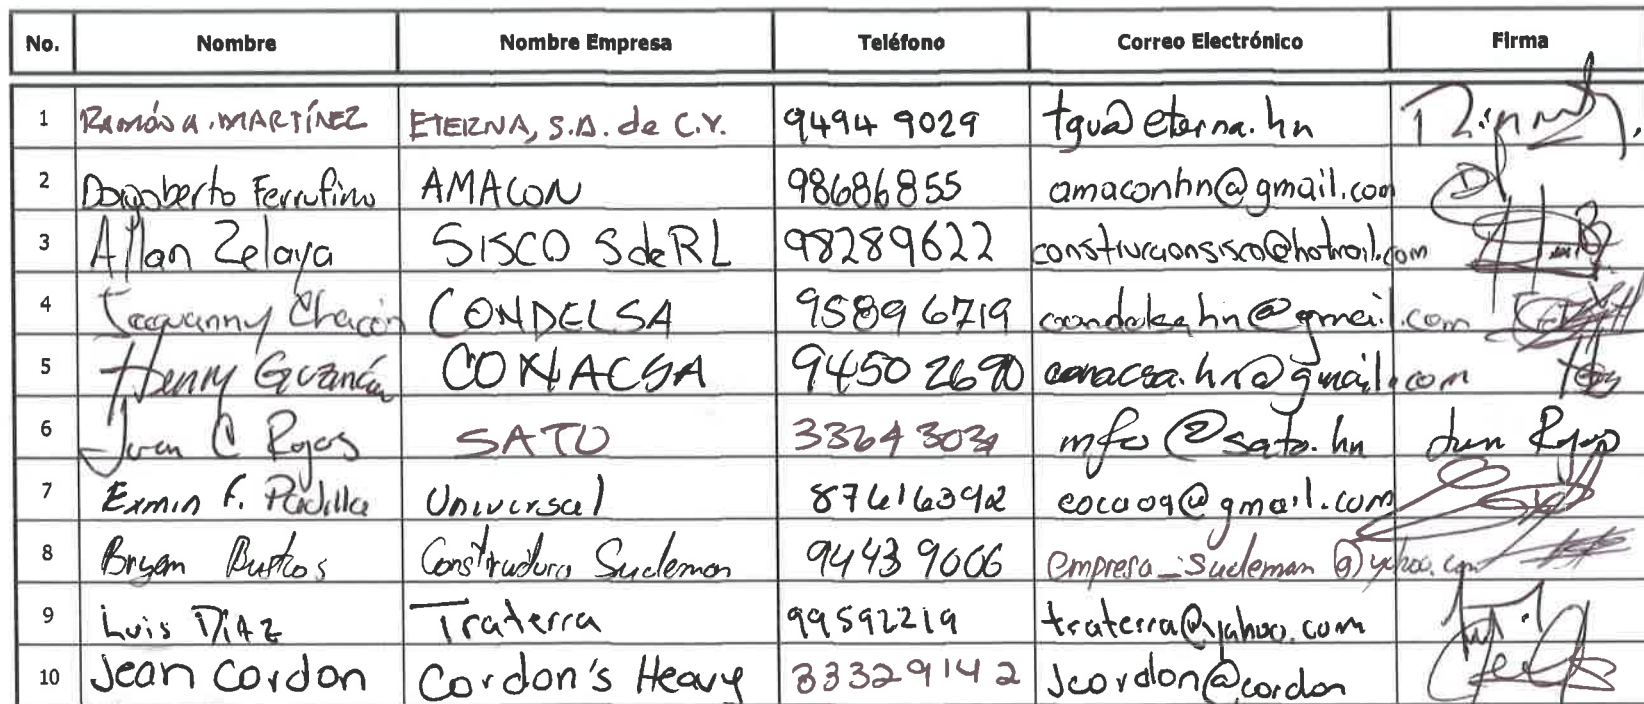 No. Nombre Nombre Empresa Teléfono Correo Electrónico Firma
1 RAMÓN A. MARTÍNEZ ETERNA, S.A. de C.V. 9494 9029 tgu@eterna.hn
2 Dagoberto Ferrufino AMACON 98686855 amaconhn@gmail.com
3 Allan Zelaya SISCO S de RL 98289622 @hotmail.com
4 Chacón CONDELSA 9589 6719 @gmail.com
5 Henry CONACSA 9450 2690 conacsa.hn@gmail.com
6 Juan C Rojas SATO 3364 3034 @sato.hn Juan Rojas
7 Ermin F. Padilla Universal 87616392 @gmail.com
8 Bryam Bustos Constructora Sudeman 9443 9006 empresa_sudeman@yahoo.com
9 Luis DiAz Traterra 99592219 traterra@yahoo.com
10 Jean Cordon Cordon's Heavy 33329142 Jcordon@cordon